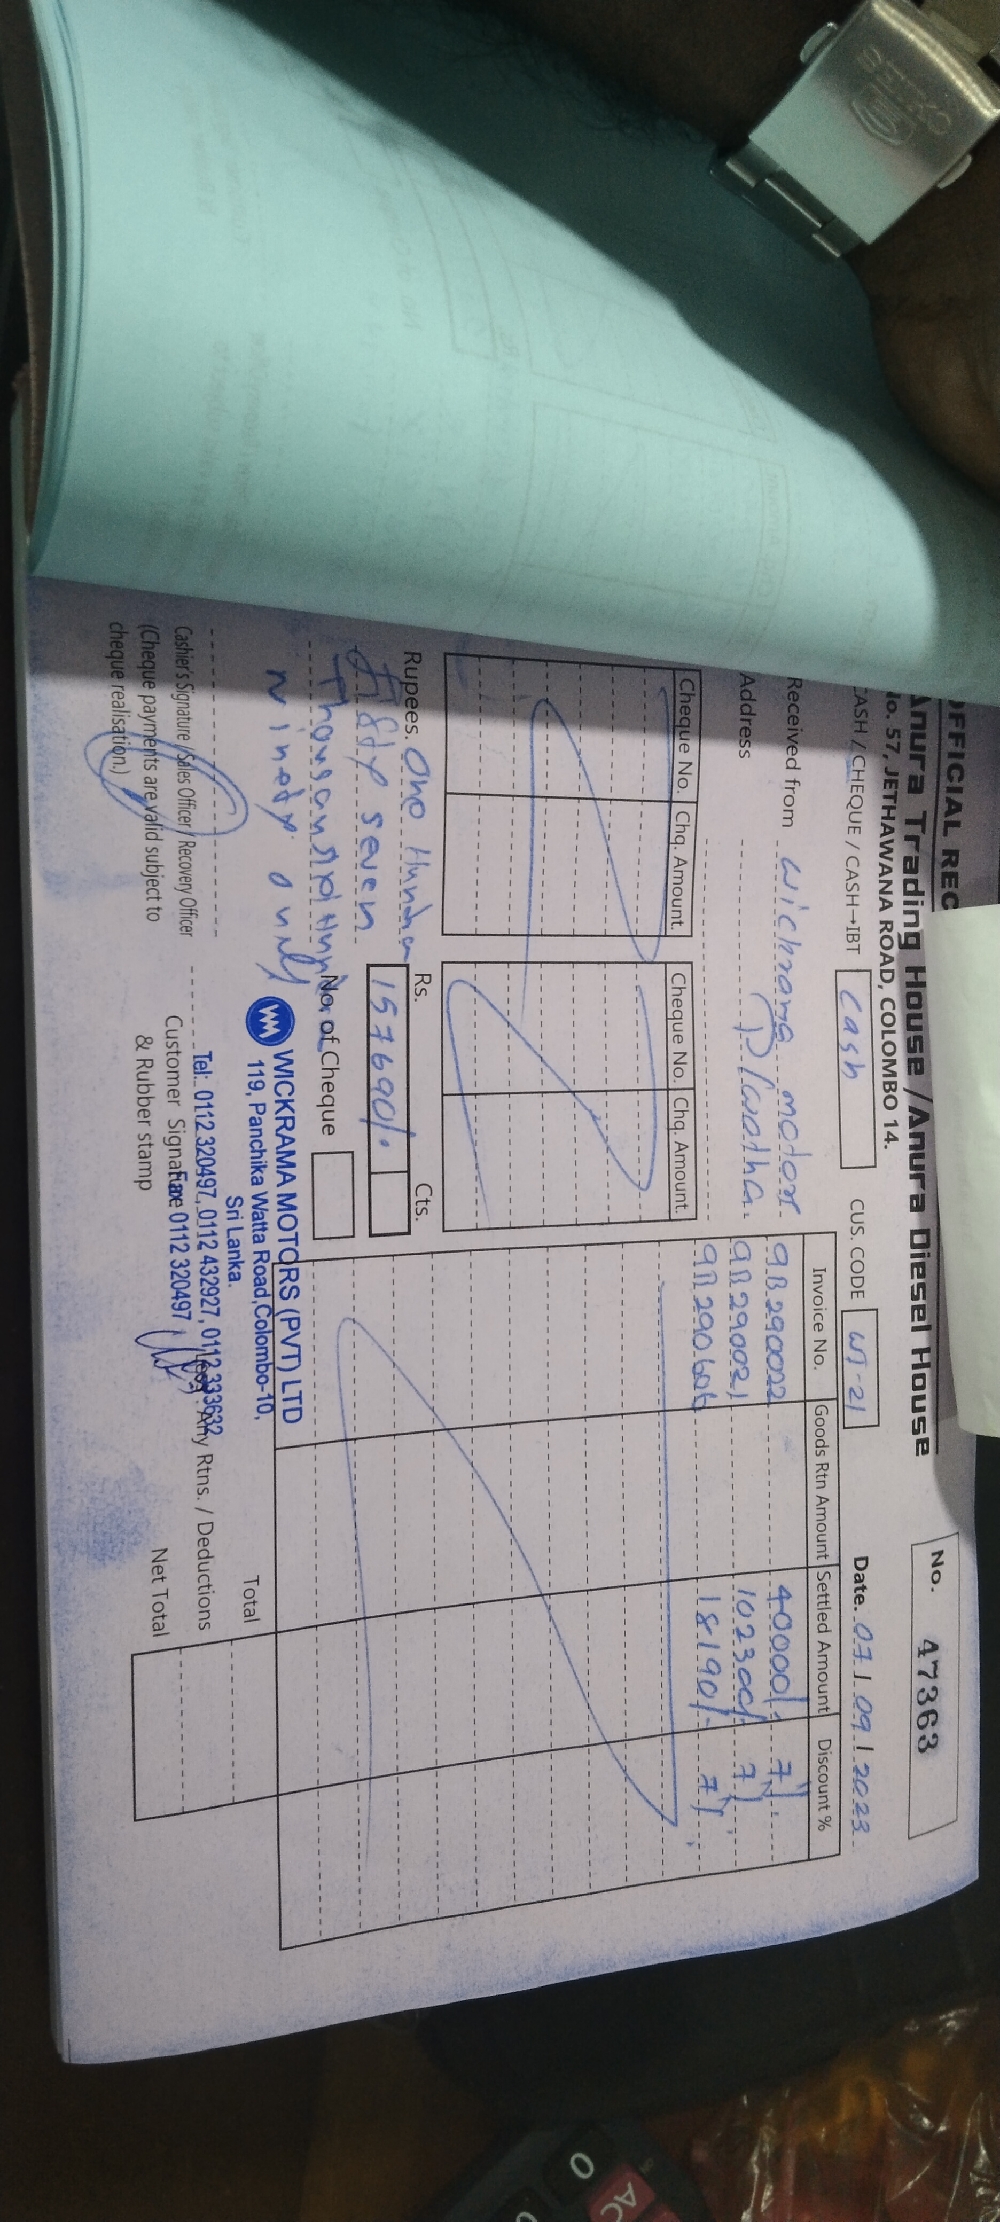 OFFICIAL REC
No. 47363
Anura Trading House / Anura Diesel House
No. 57, JETHAWANA ROAD, COLOMBO 14.
CASH / CHEQUE / CASH→IBT Cash CUS. CODE WI-21 Date. 07/09/2023
Received from Wickrama motor
Address P/watha.
Cheque No. Chq. Amount. Cheque No. Chq. Amount.
Invoice No. Goods Rtn Amount Settled Amount Discount %
9B 290022 40000/- 7%
9B 290021 102300/- 7%
9B 290606 18190/- 7%
Rupees. One Hundred
Rs. Cts.
157690/-
fifty seven
Thousand
No. of Cheque
ninety only
WICKRAMA MOTORS (PVT) LTD
119, Panchika Watta Road, Colombo-10,
Sri Lanka.
Tel: 0112 320497, 0112 432927, 0112 333632
Fax 0112 320497
Total
Less : Any Rtns. / Deductions
Net Total
Cashier's Signature / Sales Officer / Recovery Officer
(Cheque payments are valid subject to
cheque realisation.)
Customer Signature
& Rubber stamp
SEIKO
5
AC
0